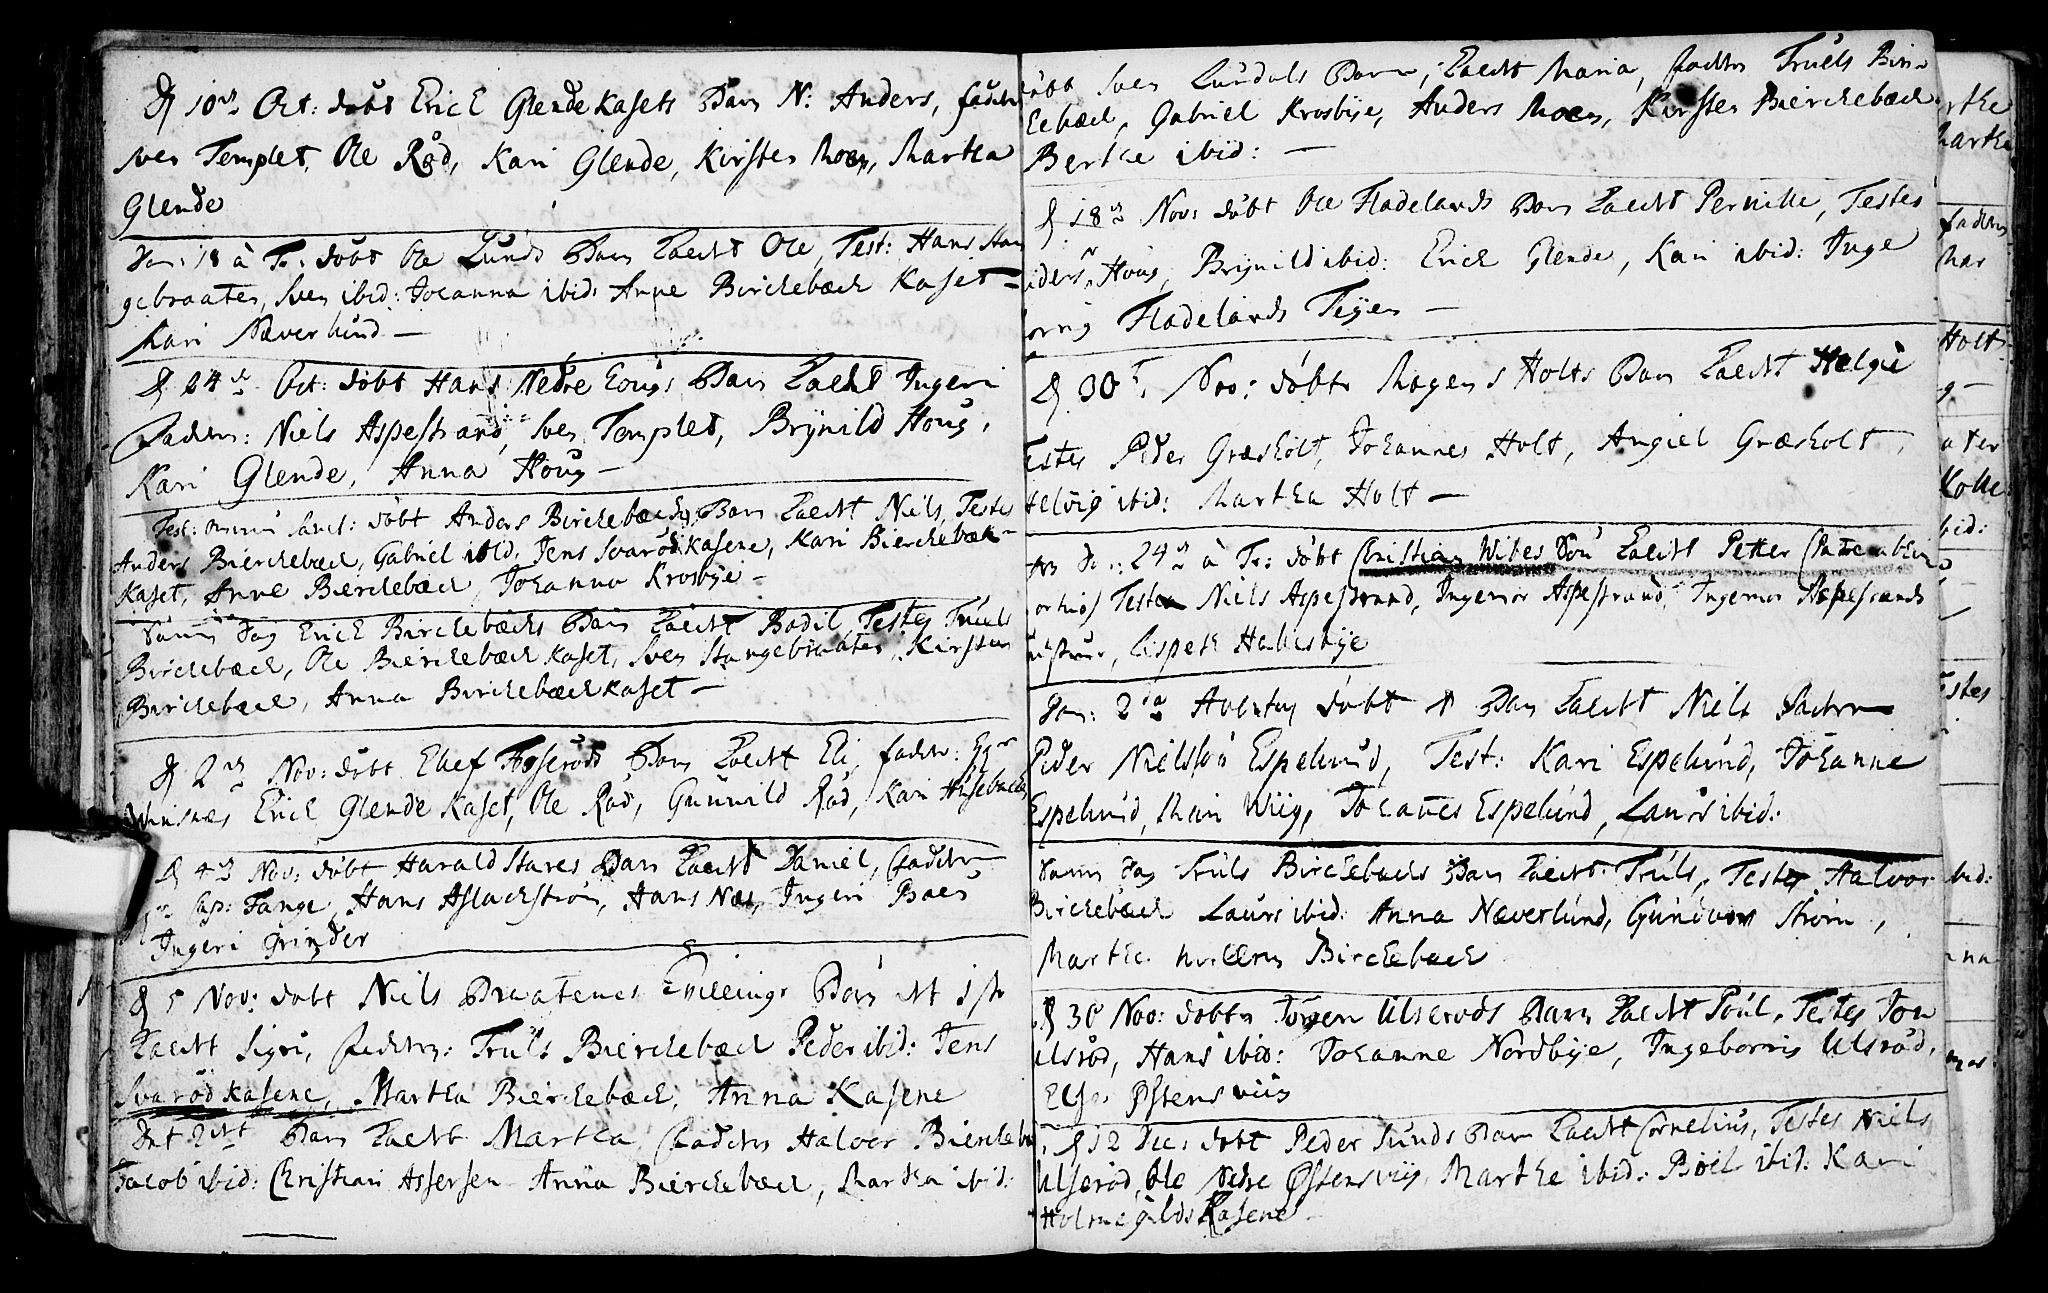 D 10de Oct: döbt Erick Glende Kasets Barn N: Anders, fadere
Sven Templet, Ole Röd, Kari Glende, Kirsten Moen, Martha
Glende
Dom: 18 à Tr: döbt Ole Lunds Barn kaldt Ole, Test: Hans Stan
gebraaten, Sven ibid: Johanna ibid: Anne Birckebæck Kaset
Mari Næverlund —
D 24de Oct: döbt Hans Nedre Hougs Barn kaldt Ingeri
Faddere: Niels Aspestrand, Sven Templet, Brynild Houg,
Kari Glende, Anna Houg —
Fest: omnium sanct: döbt Anders Birckebæcks Barn kaldt Niels, Testes
Anders Bierckebæck, Gabriel ibid. Jens Svarödkasene, Kari Bierckebæk
Kaset, Anne Bierckebæck, Johanna Krosbye —
Samme Dag Erick Birckebæcks Barn kaldt Bodil, Testes Truels
Birckebæck, Ole Bierckebæck kaset, Sven Stangebraaten, Kirsten
Birckebæck, Anna Birckebæckkaset —
D 2den Nov: döbt Elief Fosseröds Barn kaldt Eli, faddere:
Erick Glende Kaset, Ole Röd, Gunnild Röd, Kari Husebæck
D 4de Nov: döbt Harald Stares Barn kaldt Daniel, Faddere
Cap: Tange, Hans Aslackström, Hans Næs, Ingeri Baes
Ingeri Grinder
D 5 Nov: döbt Niels Braatenes Tvillinge Barn det 1ste
kaldt Sigri, faddere: Truls Bierckebæck Peder ibid: Jens
Svarödkasene, Martha Bierckebæck, Anna Kasene
Det 2det Barn kaldt Martha, Faddere Halvor Bierckebæ
Jacob ibid: Christian Assersen Anna Bierckebæck, Martha ibid:
döbt Sven Lundals Barn, kaldt Maria, fadere Truels Bir-
ckebæck, Gabriel Krosbye, Anders Moen, Kirsten Bierckebæck
Berthe ibid: —
D 18de Nov: döbt Ole Fladelands Barn kaldt Pernille, Testes
Anders Houg, Brynild ibid: Erick Glende, Kari ibid: Inge
borrig Fladelands Teyen —
D 30te Nov: döbte Mogens Holts Barn kaldt Helgie
Testes Peder Græsholt, Johannes Holt, Angiel Græsholt,
Helvig ibid: Martha Holt —
Dom: 24de à Tr: döbt Christian Wibes Sön kaldt Petter
Testes Niels Aspestrand, Ingemor Aspestrand, Ingemor Aspestrands
Lisbeth Hallesbye
Dom: 2da Adventus döbt Barn kaldt Niels Faddere
Peder Nielssön Espelund, Test: Kari Espelund, Johanne
Espelund, Mari Wiig, Johannes Espelund, Laurs ibid:
Samme Dag Truls Birckebæcks Barn kaldt Truls, Testes Halvor
Birckebæck Laurs ibid: Anna Næverlund, Gundvor Ström,
Marthe Birckebæck
D 30 Nov: döbte Jörgen Ulseröds Barn kaldt Poul, Testes Jon
Ulsröd, Hans ibid: Johanne Nordbye, Ingeborrig Ulsröd,
Else Östensviig
D 12 Dec: döbt Peder Sunds Barn kaldt Cornelius, Testes Niels
Ulseröd, Ole Nedre Östensviig, Marthe ibid: Böel ibid: Kari
Holmegilds Kasene —